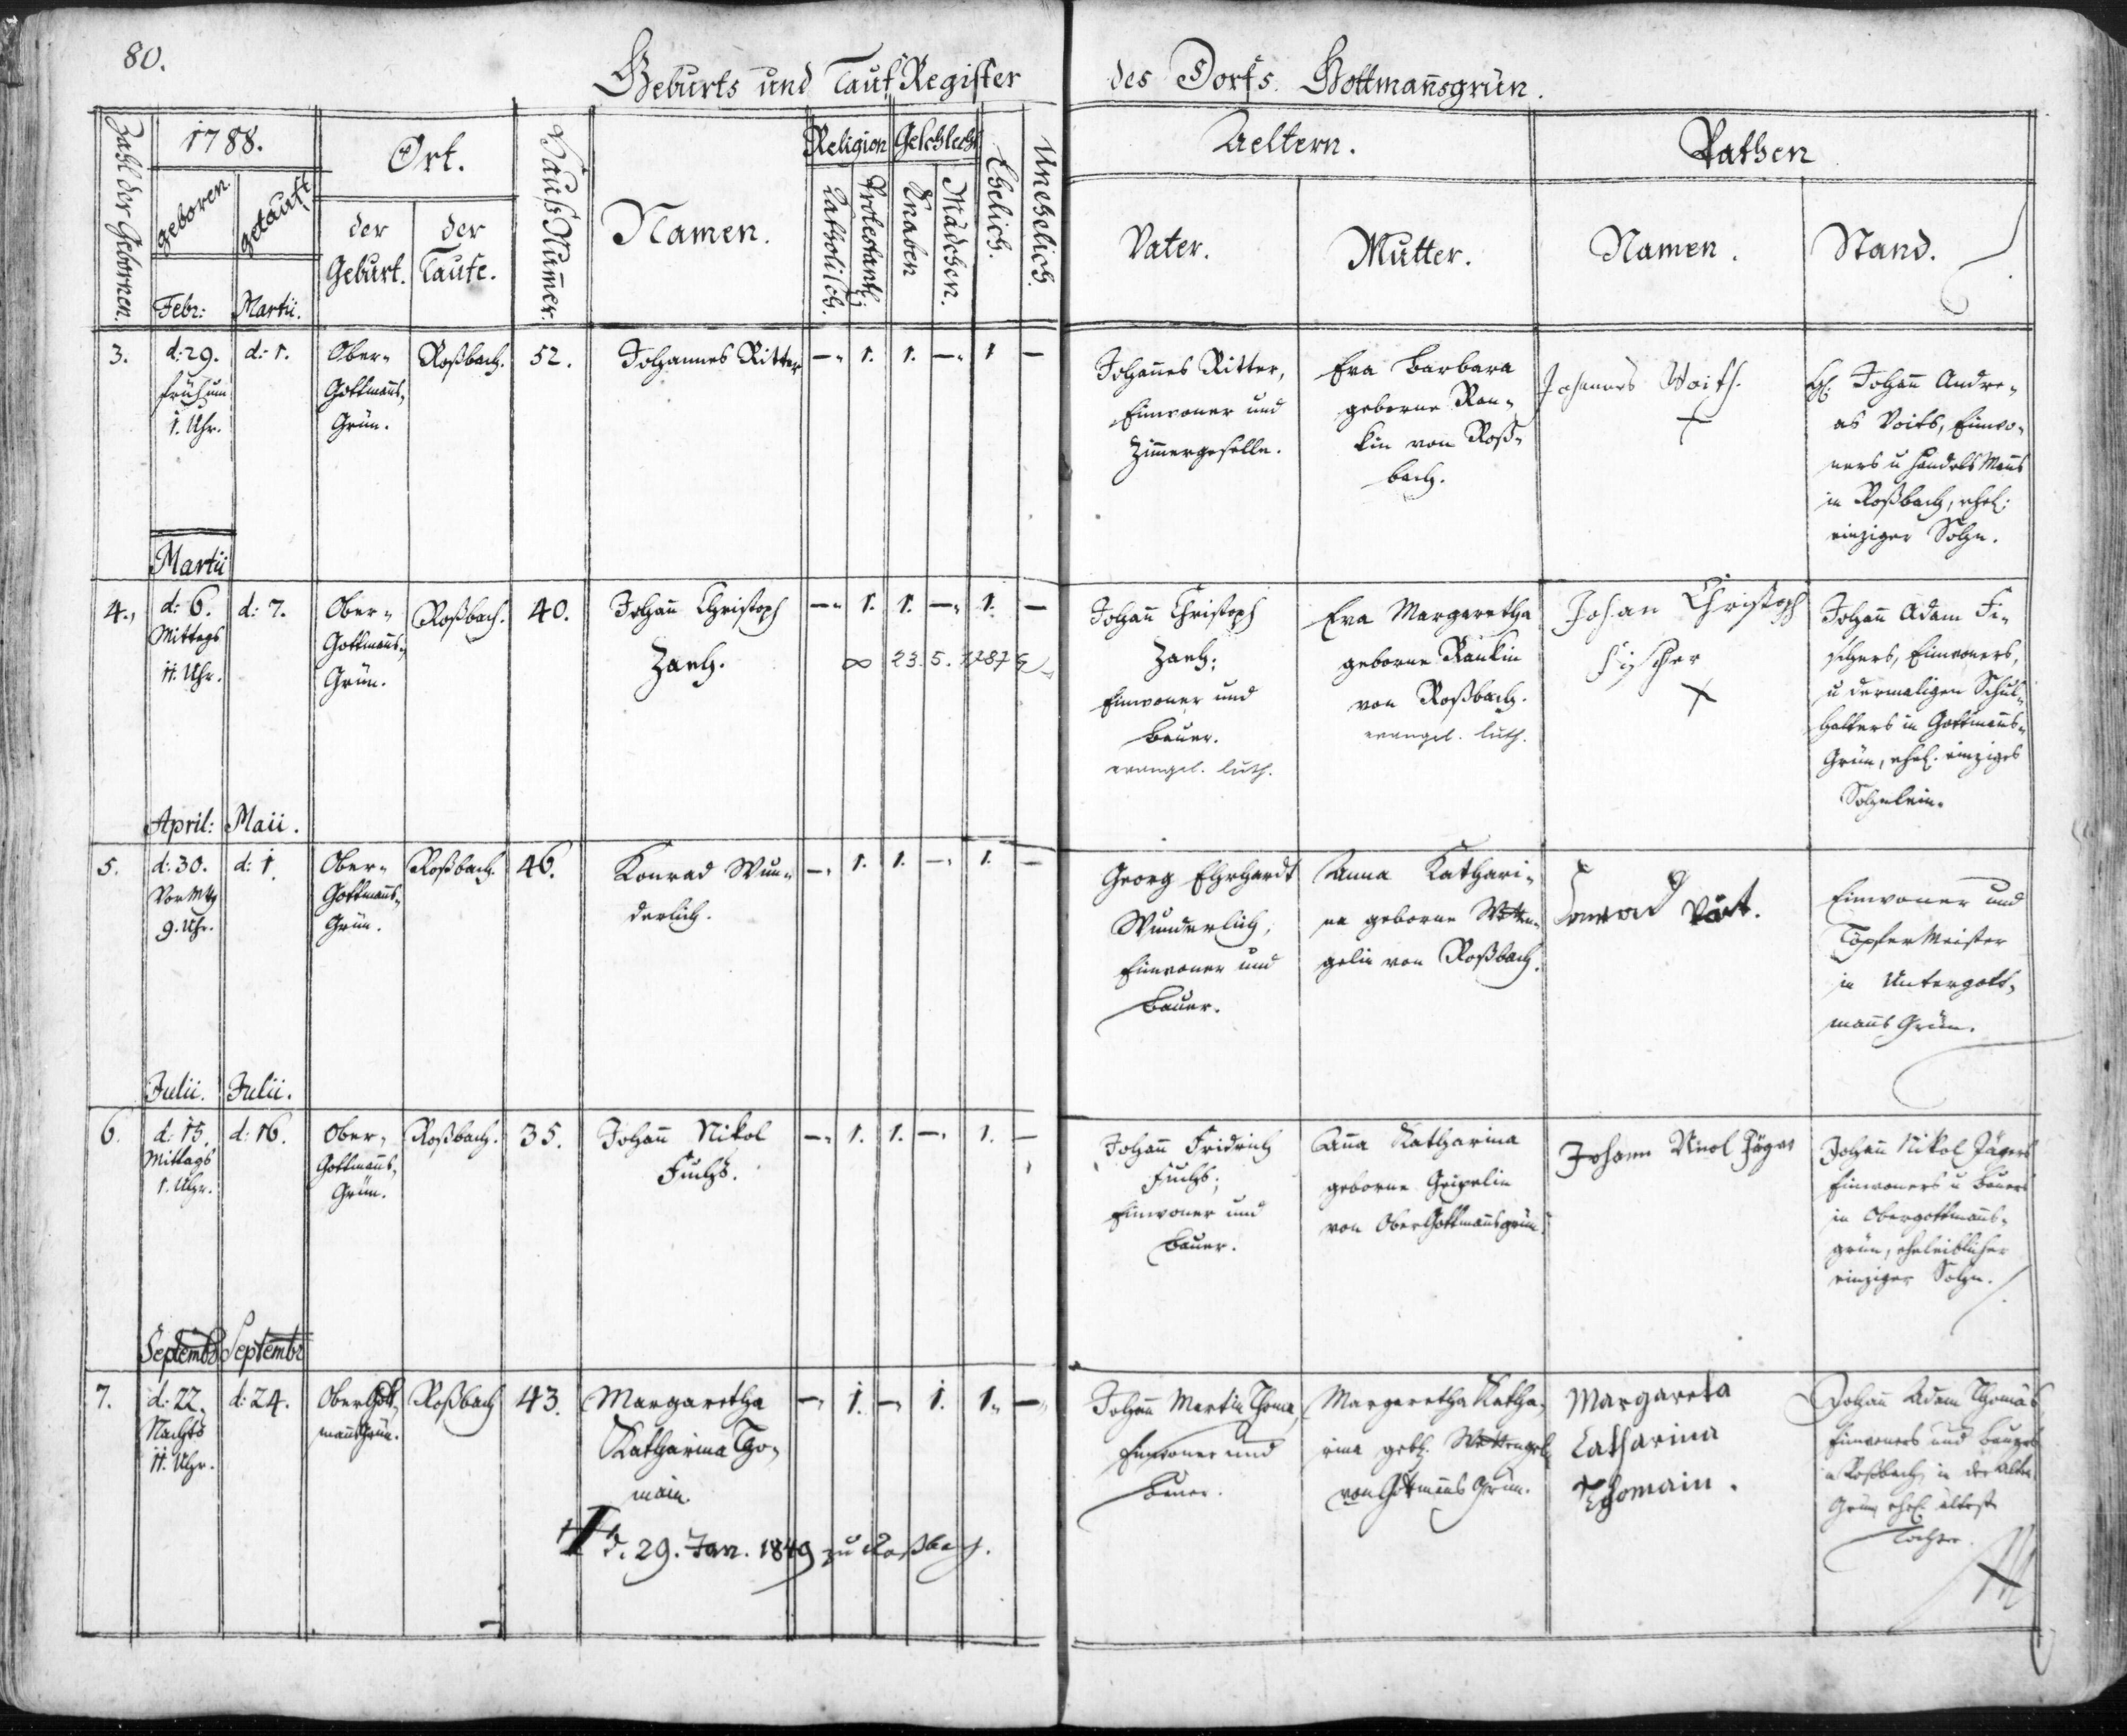 80.
Geburts und Tauf Register des Dorfs Gottmañsgrün.
Zahl der Gebornen.
1788.
geboren.
getauft
Febr:
Martii.
Ort.
der Geburt.
der Taufe.
Hauß Num̃er.
Namen.
Religion
Catholisch.
Protestant:
Geschlecht
Knaben
Mädchen.
Ehelich.
Unehelich.
Aeltern.
Vater.
Mutter.
Pathen
Namen.
Stand.
3.
d: 29.
früh um
1. Uhr.
d: 1.
Ober-
Gottmañs-
Grün.
Roßbach.
52.
Johannes Ritter
—
1.
1.
—
1
—
Johañes Ritter,
Einwoner und
Zim̃ergeselle.
Eva Barbara
geborne Ran-
kin von Roß-
bach.
Johannes Voith.
+
H. Johañ Andre-
as Voits, Einwo-
ners u Handels Mañs
in Roßbach, ehel:
einziger Sohn.
Martii
4.
d: 6.
Mittags
11. Uhr.
d: 7.
Ober-
Gottmañs-
Grün.
Roßbach.
40.
Johañ Christoph
Zaeh.
—
1.
1.
—
1.
—
∞ 23. 5.
Johañ Christoph
Zaeh;
Einwoner und
Bauer.
evangel. luth.
Eva Margaretha
geborne Rankin
von Roßbach.
evangel. luth.
Johan Christoph
Fischer
+
Johañ Adam Fi-
schers, Einwoners,
u dermaligen Schul-
halters in Gottmañs-
Grün, ehel. einziges
Sohnlein.
April:
Maii.
5.
d: 30.
Vor Mttg
9. Uhr.
d: 1.
Ober-
Gottmañs-
Grün.
Roßbach.
46.
Konrad Wun-
derlich.
—
1.
1.
—
1.
—
Georg Ehrhardt
Wunderlich;
Einwoner und
Bauer.
Anna Kathari-
na geborne Wetten-
gelin von Roßbach.
Einwoner und
Töpfer Meister
in Untergott-
mañs Grün.
Julii.
Julii.
6.
d: 15.
Mittags
1. Uhr.
d: 16.
Ober-
Gottmañs-
Grün.
Roßbach.
35.
Johañ Nikol
Fuchs.
—
1.
1.
—
1.
—
Johañ Fridrich
Fuchs;
Einwoner und
Bauer.
Aña Katharina
geborne Geipelin
von Ober Gottmañsgrün.
Johann Nicol Jäger
Johañ Nikol Jägers
Einwoners u Bauers
in Obergottmañs-
grün, eheleiblicher
einziger Sohn.
Septembr
Septembr
7.
d: 22.
Nachts
11. Uhr.
d: 24.
Ober Gott-
mañs Grün.
Roßbach
43.
Margaretha
Katharina Tho-
main.
—
1.
—
1.
1.
—
† d. 29. Jan. 1849 zu Roßbach.
Johañ Martin Thoma,
Einwoner und
Bauer.
Margaretha Katha-
rina geb. Wettengel
von Gottmañs Grün.
Margareta
Catharina
Thomain.
Johañ Adam Thomas
Einwoners und Bauers
in Roßbach in der alten
Grün ehel. älteste
Tochter.